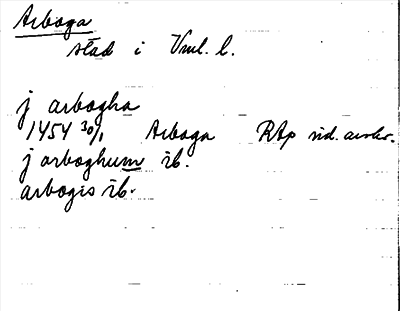 Arboga
stad i Vml. l.
j arbogha
1454 30/1 Arboga RAp nid. avskr.
j arboghum ib.
arbogis ib.